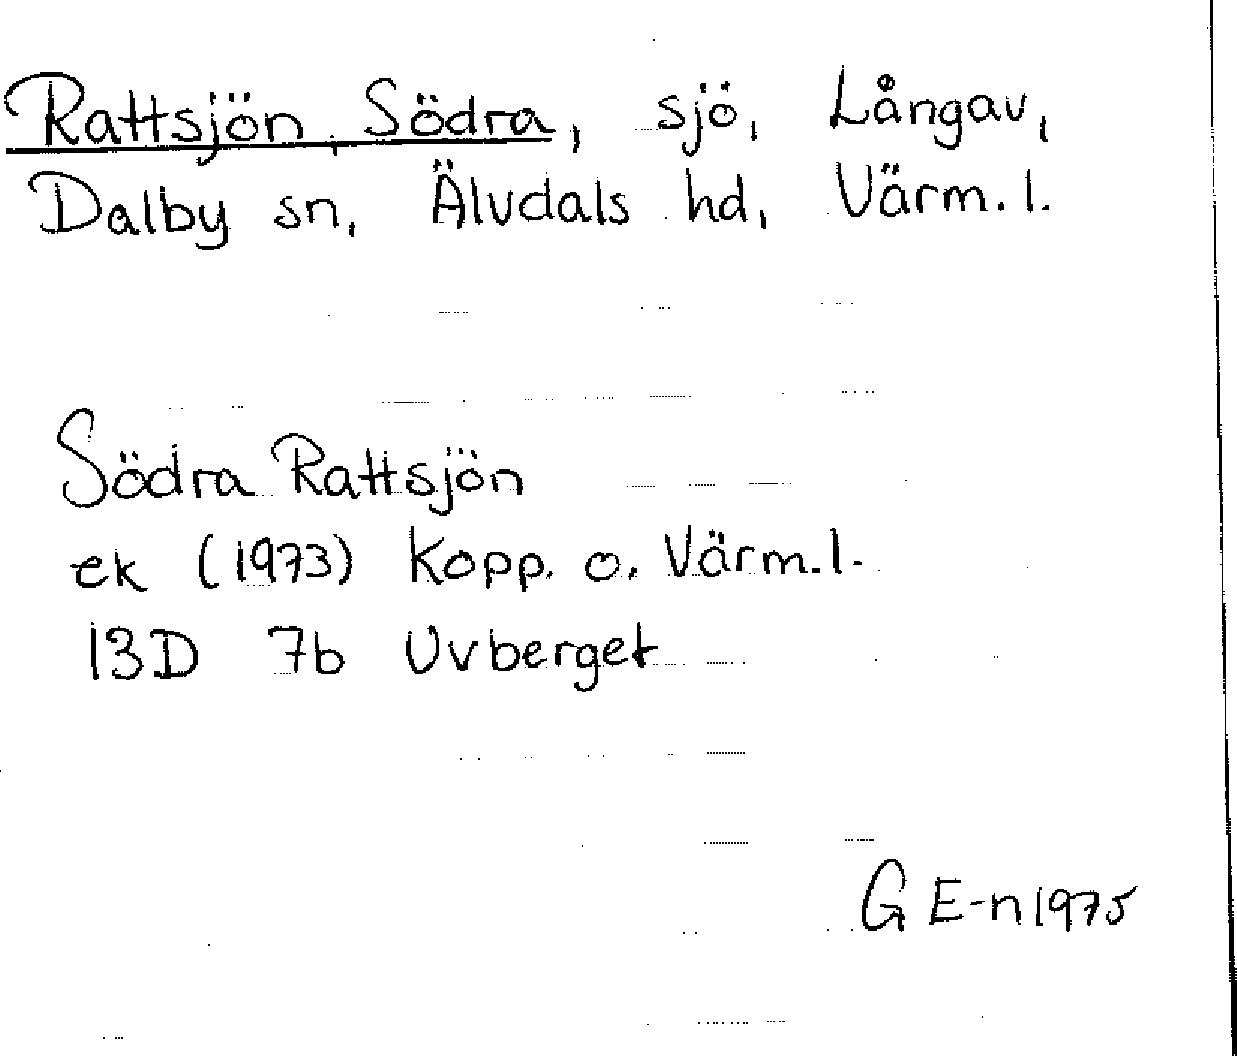 Rattsjön, Södra, sjö, Långav,
Dalby sn, Älvdals hd, Värm. l.
Södra Rattsjön
ek (1973) Kopp. o. Värm. l.
13D 7b Uvberget
G E-n 1975